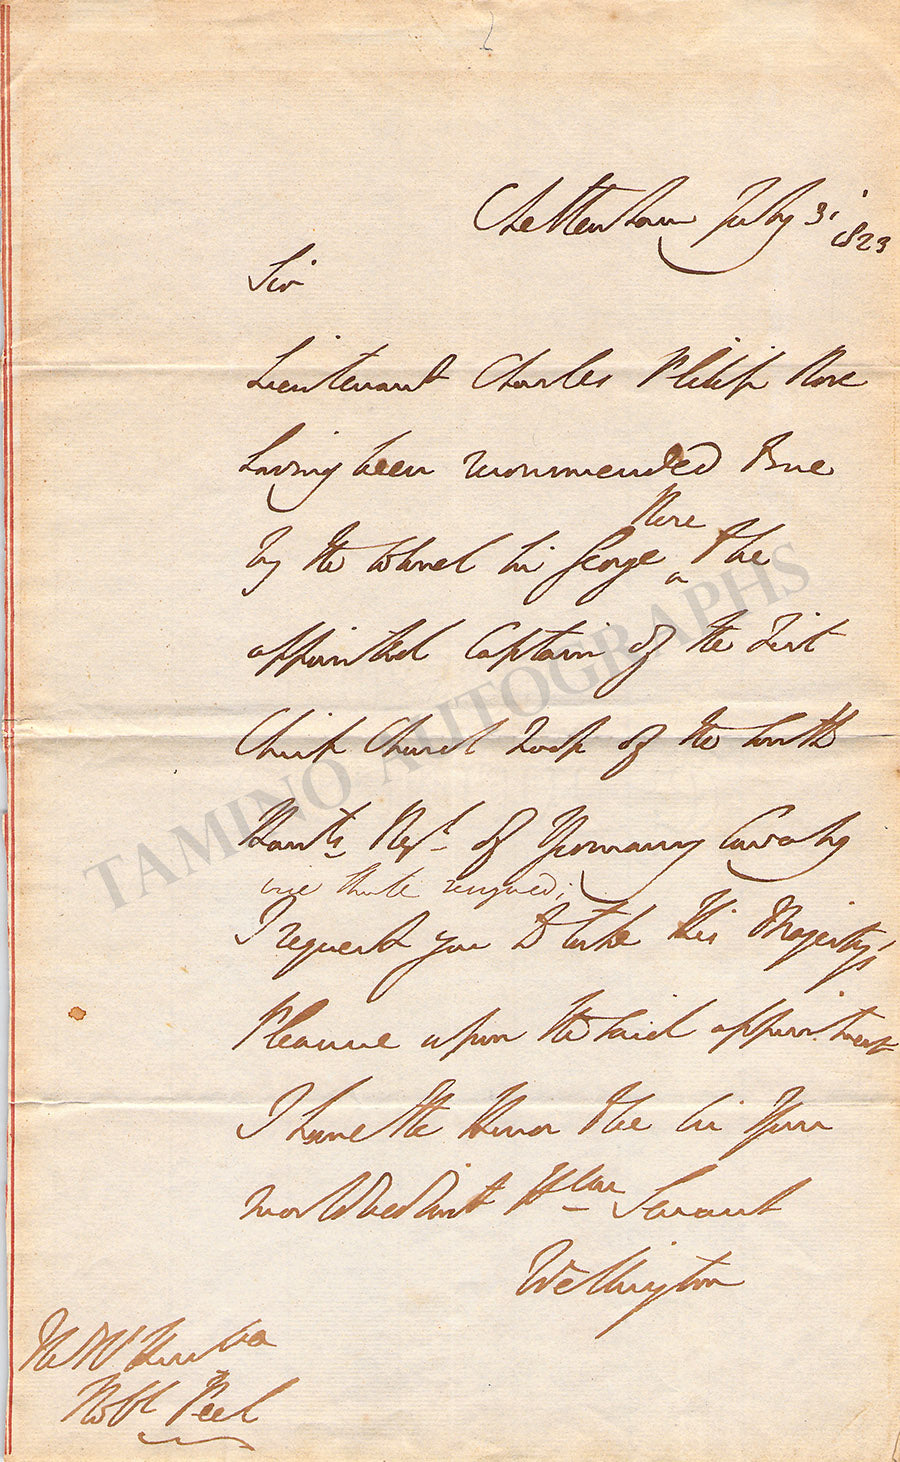 Cheltenham July 31
1823
Sir
Lieutenant Charles Philip Rose
having been recommended to me
by the Colonel Sir George Rose to be
appointed Captain of the First
Christ Church Troop of the South
Hants Regt. of Yeomanry Cavalry
vice resigned;
I request you to take His Majesty's
Pleasure upon the said appointment
I have the Honor to be Sir Your
most obedient Hble Servant
Wellington
The Rt Honble
Robt Peel
TAMINO AUTOGRAPHS